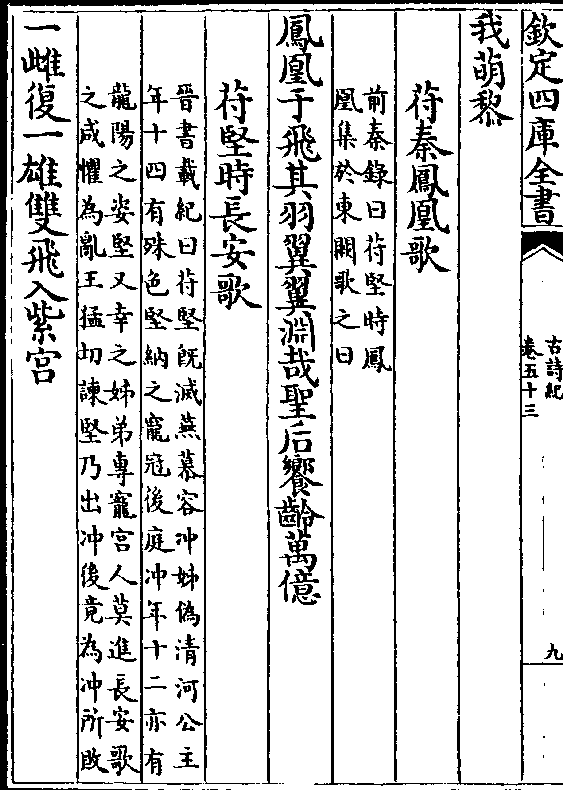 欽定四庫全書
古詩紀
卷五十三
九
我萌黎
苻秦鳳凰歌
前秦錄曰苻堅時鳳
凰集於東闕歌之曰
鳳凰于飛其羽翼翼淵哉聖后饗齡萬億
苻堅時長安歌
晉書載紀曰苻堅既滅燕慕容沖姊偽清河公主
年十四有殊色堅納之寵冠後庭沖年十二亦有
龍陽之姿堅又幸之姊弟專寵宮人莫進長安歌
之咸懼為亂王猛切諫堅乃出沖後竟為沖所敗
一雌復一雄雙飛入紫宮